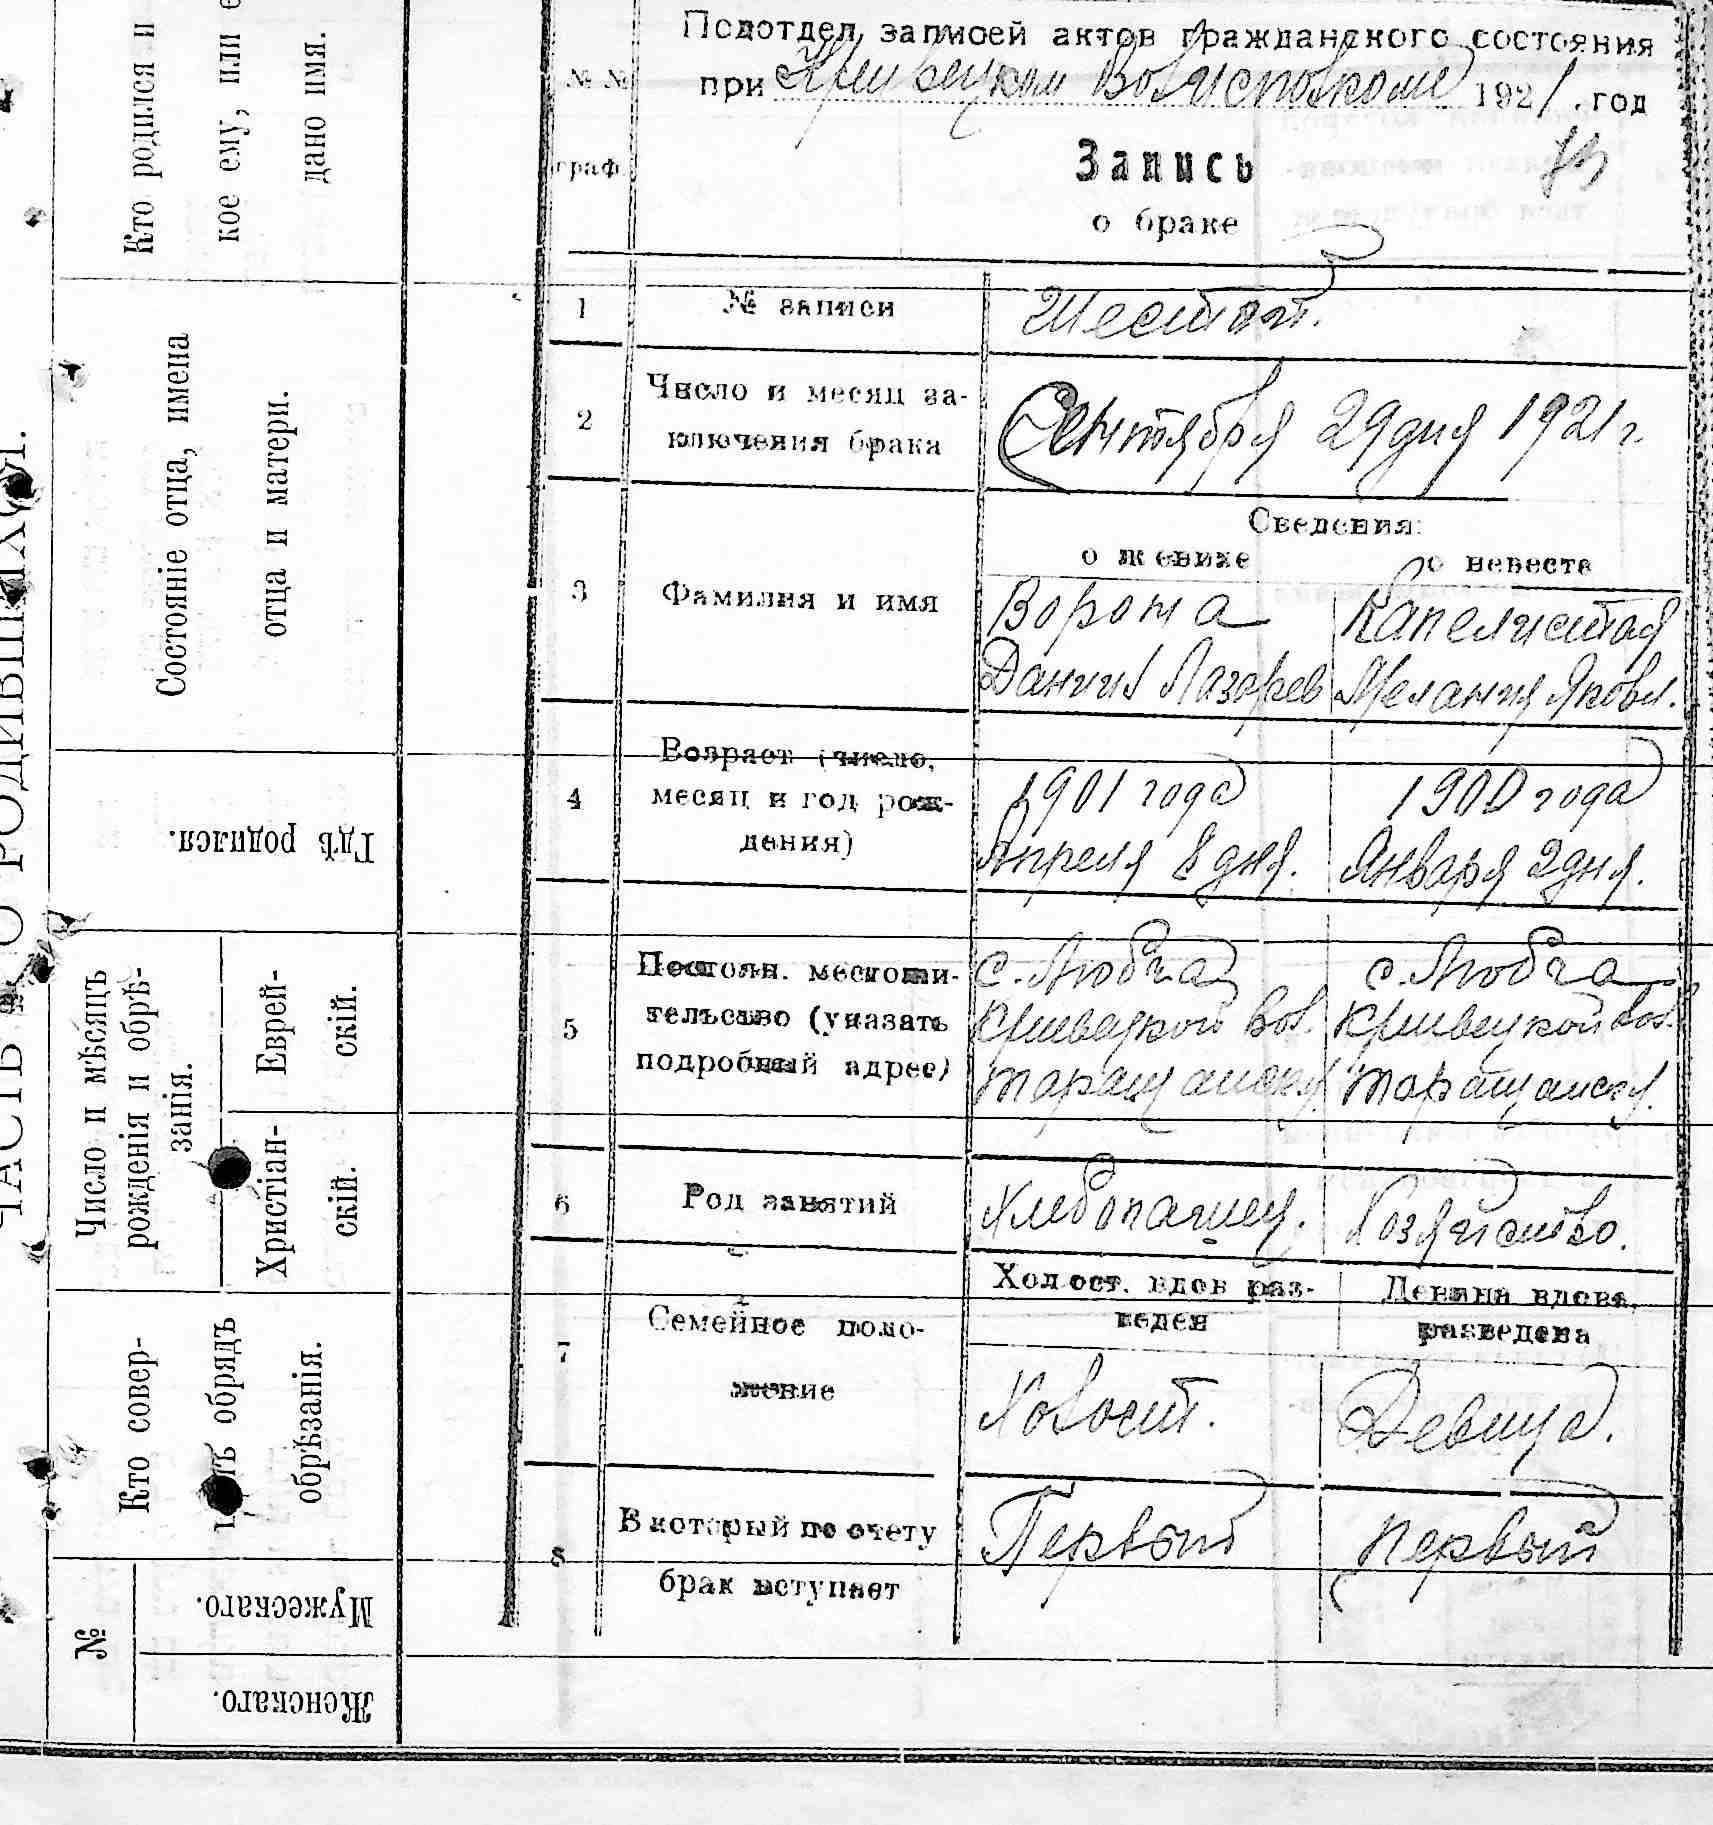 Подотдел записей актов гражданского состояния
при Кривецком Волисполкоме 1921. год
№№
граф.
Запись
о браке
1 № записи Шестой.
2 Число и месяц за-
ключения брака
Сентября 29 дня 1921 г.
Сведения:
о женихе о невесте
3 Фамилия и имя
Ворона Капелистая
Даниил Лазорев Мелания Яковл.
4 Возраст (число,
месяц и год рож-
дения)
1901 года 1900 года
Апреля 8 дня. Января 2 дня.
5 Постоян. местожи-
тельство (указать
подробный адрес)
с. Любча с. Любча
Кривецкой вол. Кривецкой вол.
6 Род занятий Хлебопашец. Хозяйство.
7 Семейное поло-
жение
Холост. вдов раз-
веден
Девица вдова,
разведена
Холост. Девица.
8 В который по счету
брак вступает
Первый Первый
ЧАСТЬ О РОДИВШИХСЯ.
Кто родился и
кое ему, или е
дано имя.
Состояніе отца, имена
отца и матери.
Гдѣ родился.
Число и мѣсяцъ
рожденія и обрѣ-
занія.
Еврей-
скій.
Христіан-
скій.
Кто совер-
обрядъ
обрѣзанія.
№
Мужескаго.
Женскаго.